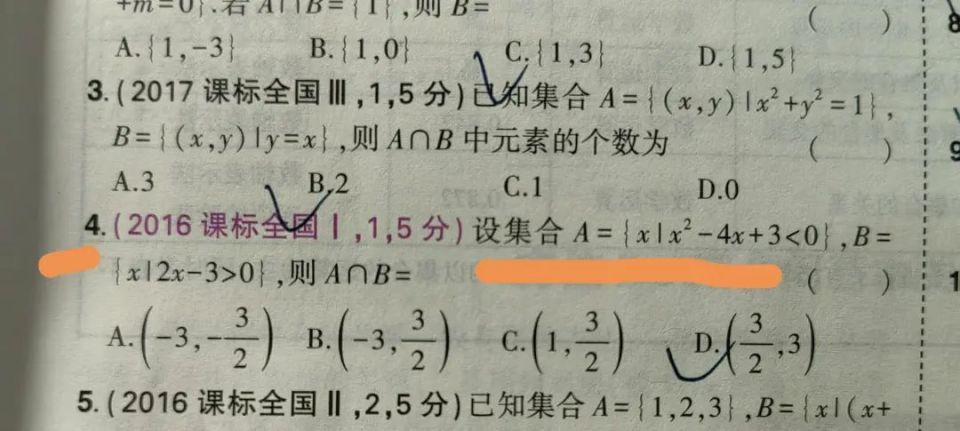 +m=0}.若A∩B={1},则B=
( )
8
A.{1,-3} B.{1,0} C.{1,3} D.{1,5}
3.(2017课标全国Ⅲ,1,5分)已知集合A={(x,y)|x²+y²=1},
B={(x,y)|y=x},则A∩B中元素的个数为 ( )
9
A.3 B.2 C.1 D.0
4.(2016课标全国Ⅰ,1,5分)设集合A={x|x²-4x+3<0},B=
{x|2x-3>0},则A∩B= ( )
1
A.(-3,-3/2) B.(-3,3/2) C.(1,3/2) D.(3/2,3)
5.(2016课标全国Ⅱ,2,5分)已知集合A={1,2,3},B={x|(x+